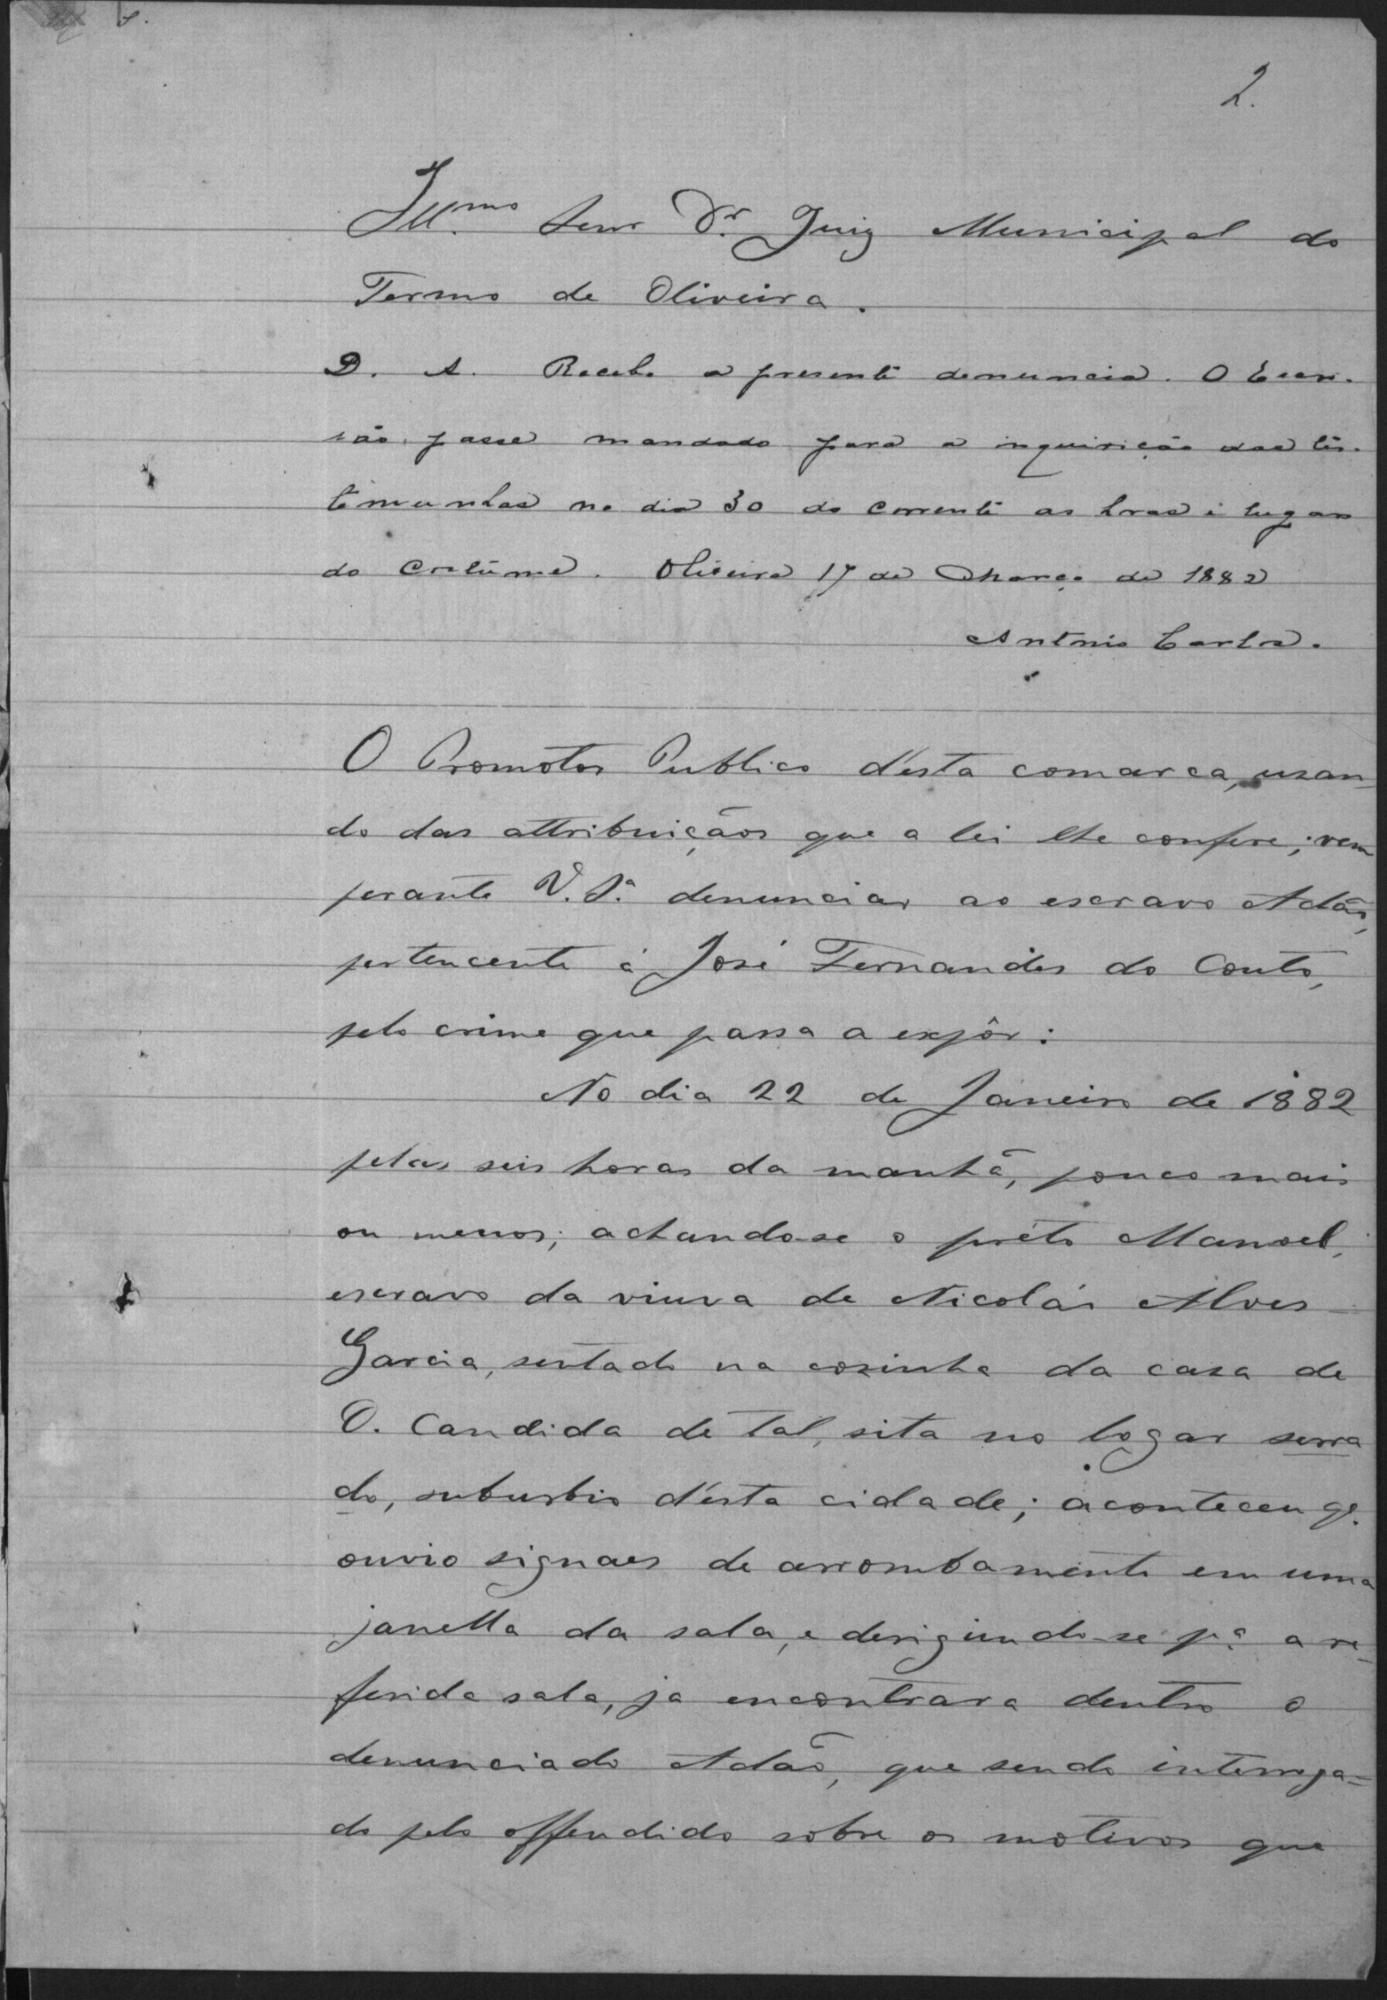 2.
Ill.mo Senr Dr. Juiz Municipal do
Termo de Oliveira.
D. A. Recebo a presente denuncia. O Escri-
vão passe mandado para a inquirição das tes-
temunhas no dia 30 do corrente as horas e lugar
do costume. Oliveira 17 de Março de 1882
Antonio Carlos.
O Promotor Publico d'esta comarca, usan-
do das attribuiçãos que a lei lhe confere; vem
perante V. Sª. denunciar ao escravo Adão,
pertencente á José Fernandes do Couto,
pelo crime que passa a expôr:
No dia 22 de Janeiro de 1882
pelas seis horas da manhã, pouco mais
ou menos; achando-se o prêto Manoel,
escravo da viuva de Nicoláo Alves
Garcia, sentado na cosinha da casa de
D. Candida de tal, sita no logar serra
do, suburbio d'esta cidade; aconteceu qe.
ouvio signaes de arrombamento em uma
janella da sala, e derigindo-se pª a re-
ferida sala, ja encontrara dentro o
denunciado Adão, que sendo interroga=
do pelo offendido sobre os motivos que